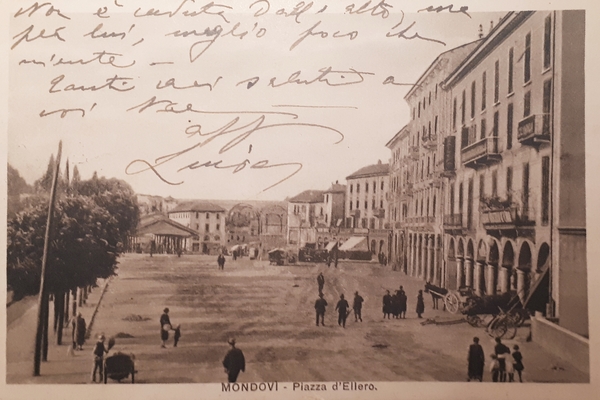 Non è caduta Dall'alto, ma
per lui, meglio poco che
niente -
Tanti cari saluti a
voi
aff
Luisa
MONDOVÌ - Piazza d'Ellero.